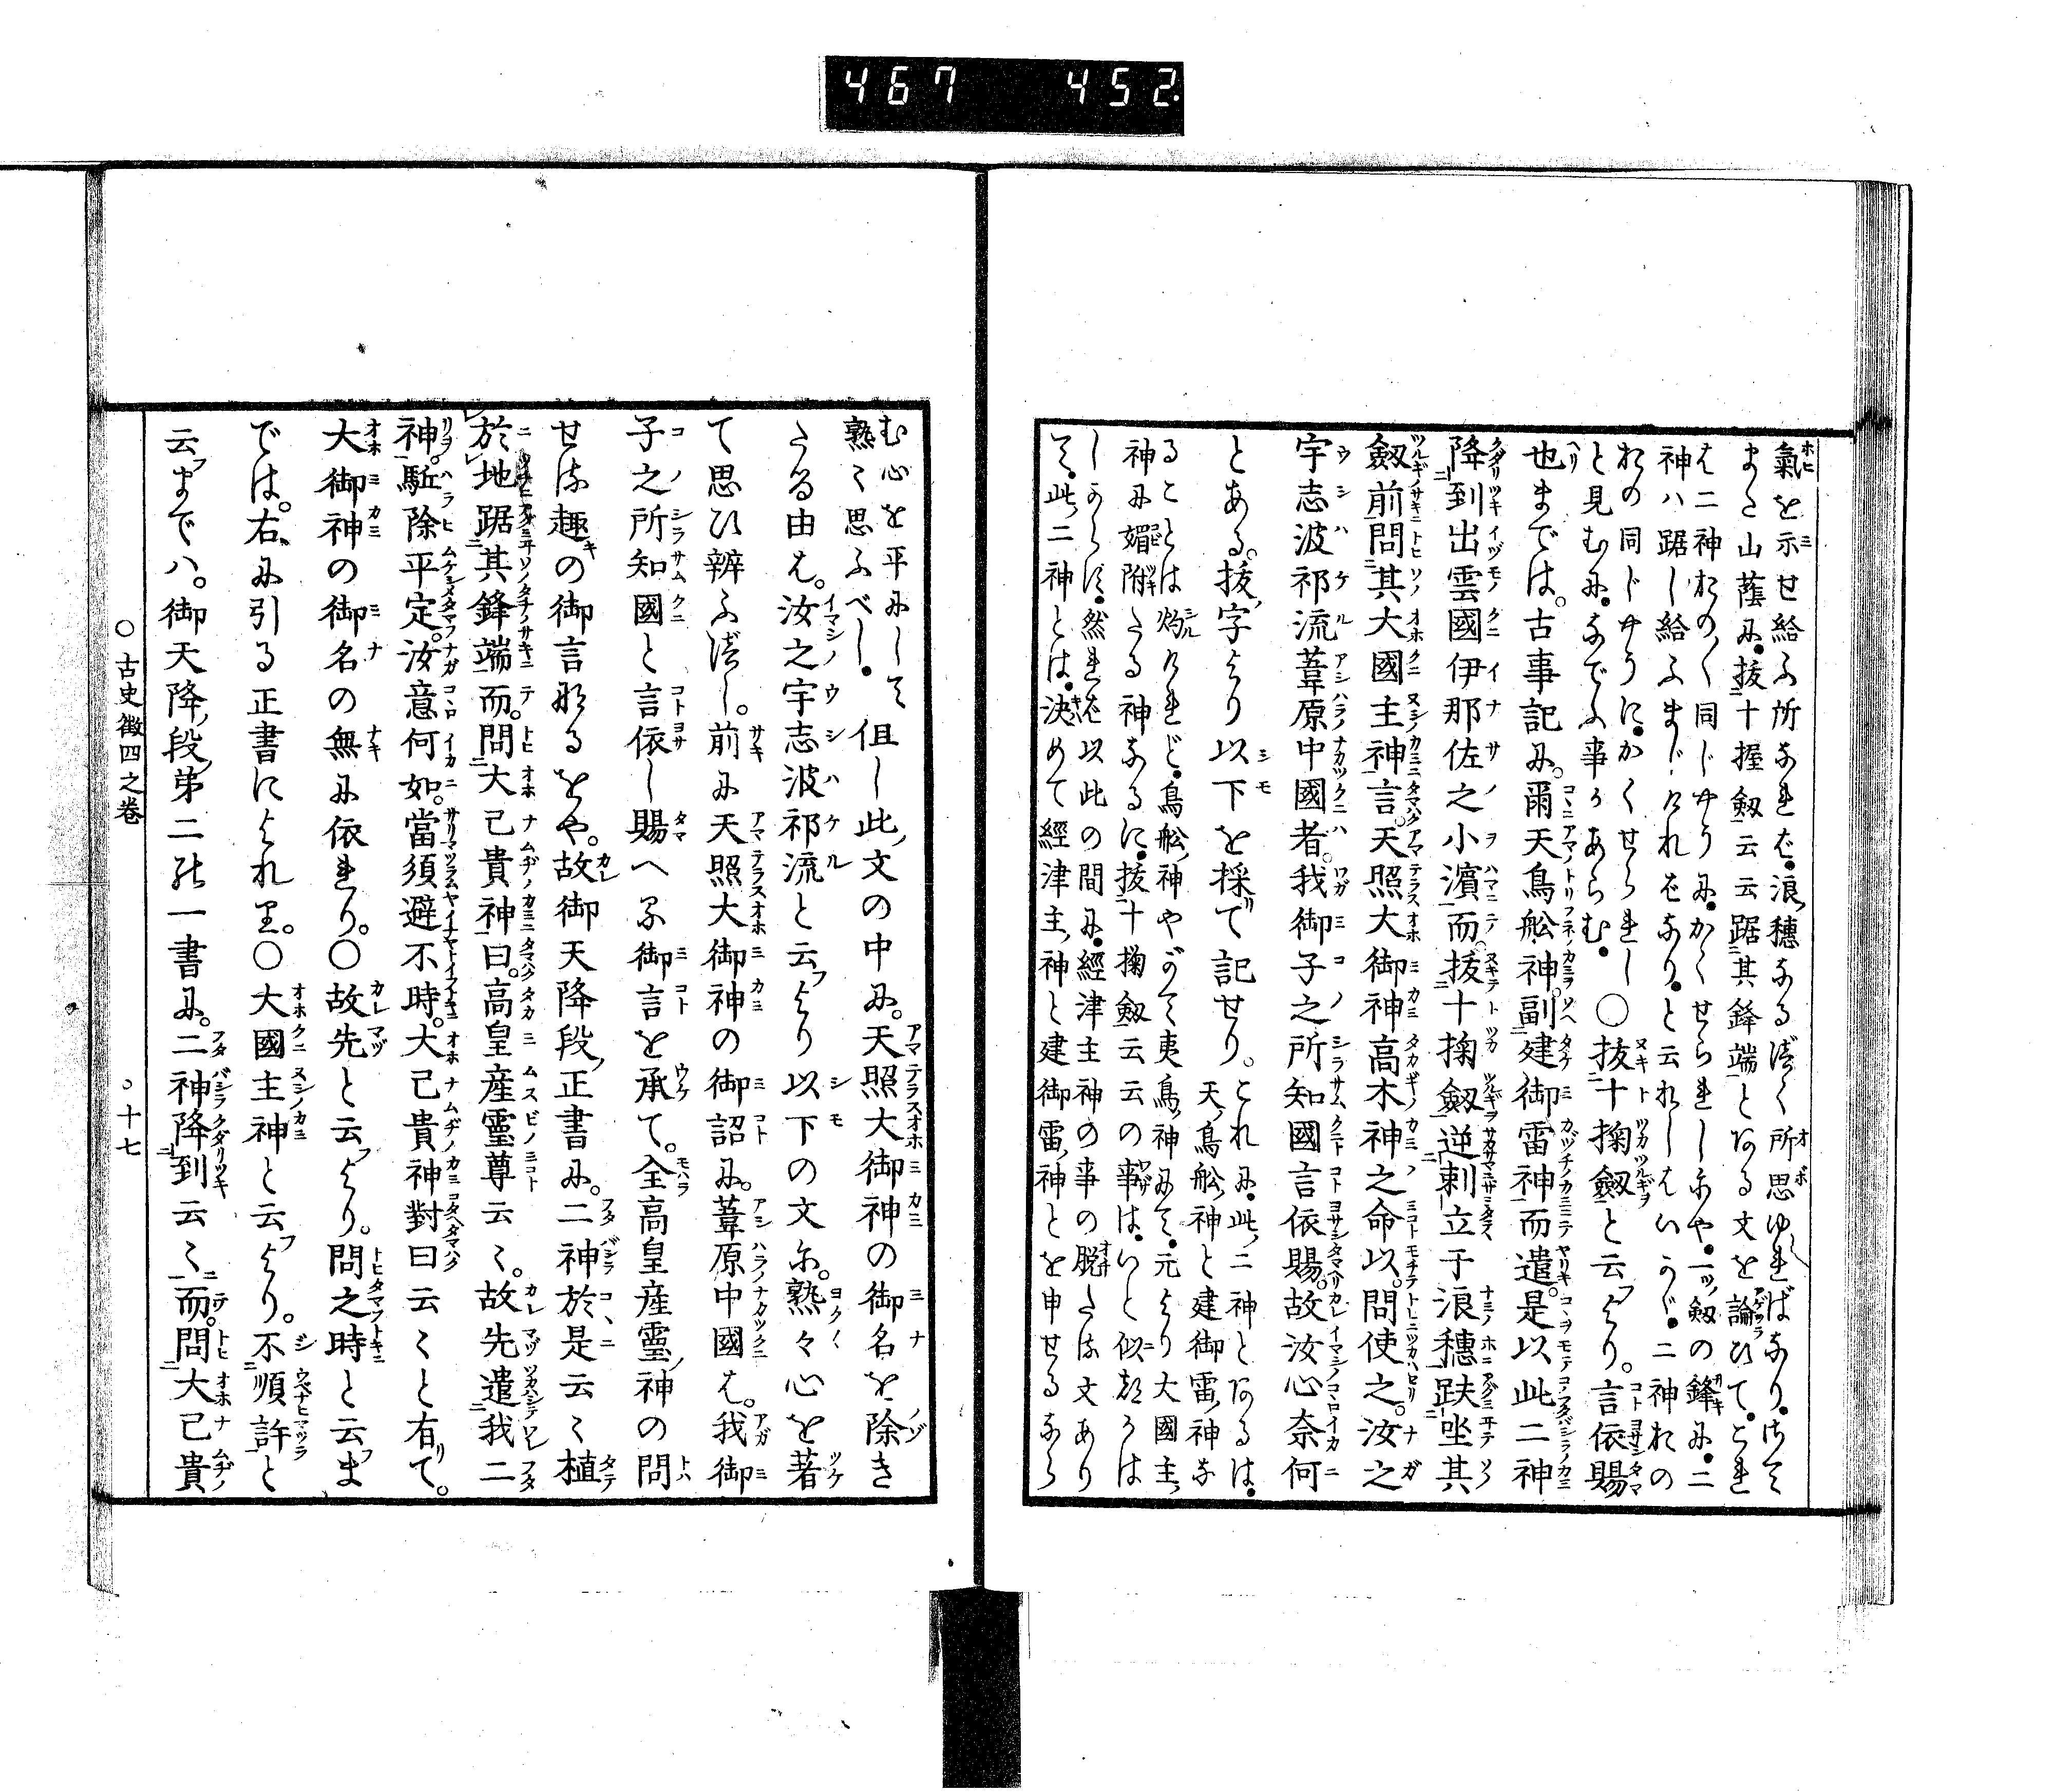 467 452
氣を示せ給ふ所なれば、浪穗なるばく所思ゆればなり、さて
また山蔭に、拔十握劔云云踞其鋒端とある文を論ひて、これ
は二神おの〳〵同じやうに、かくせられしにや、一ッ劔の鋒に、二
神ハ踞し給ふまじければなり、と云れしはいかゞ、二神おの
おの同じやうに、かくせられし
と見むに、なでふ事かあらむ、○拔十掬劔と云より、言依賜
也までは、古事記に、爾天鳥舩神副建御雷神而遣、是以此二神
降到出雲國伊那佐之小濵而、拔十掬劔逆刺立于浪穗、趺坐其
劔前、問其大國主神言、天照大御神高木神之命以、問使之、汝之
宇志波祁流葦原中國者、我御子之所知國言依賜、故汝心奈何
とある、拔字より以下を採て記せり、これに、此二神とあるは、
天鳥舩神と建御雷神な
ることは灼けれど、鳥舩神やがて夷鳥神にて、元より大國主
神に媚附たる神なるに、拔十掬劔云云の事は、いと似都かは
しからず、然れば以此の間に、經津主神の事の脱たる文あり
て、此二神とは、決めて經津主神と建御雷神とを申せるなら
む心を平にして
熟く思ふべし、但し此文の中に、天照大御神の御名を除き
たる由は、汝之宇志波祁流と云より以下の文に、熟々心を著
て思ひ辨ふべし、前に天照大御神の御詔に、葦原中國は、我御
子之所知國と言依し賜へる御言を承て、全高皇産靈神の問
せる趣の御言なるをや、故御天降段正書に、二神於是云々植
於地踞其鋒端而、問大己貴神曰、高皇産靈尊云々、故先遣我二
神、駈除平定、汝意何如、當須避不時、大己貴神對曰云々と有て、
大御神の御名の無に依れり、○故先と云より、問之時と云ま
では、右に引る正書によれり、○大國主神と云より、不順許と
云までハ、御天降段第二の一書に、二神降到云々而、問大己貴
○古史徴四之卷
○十七